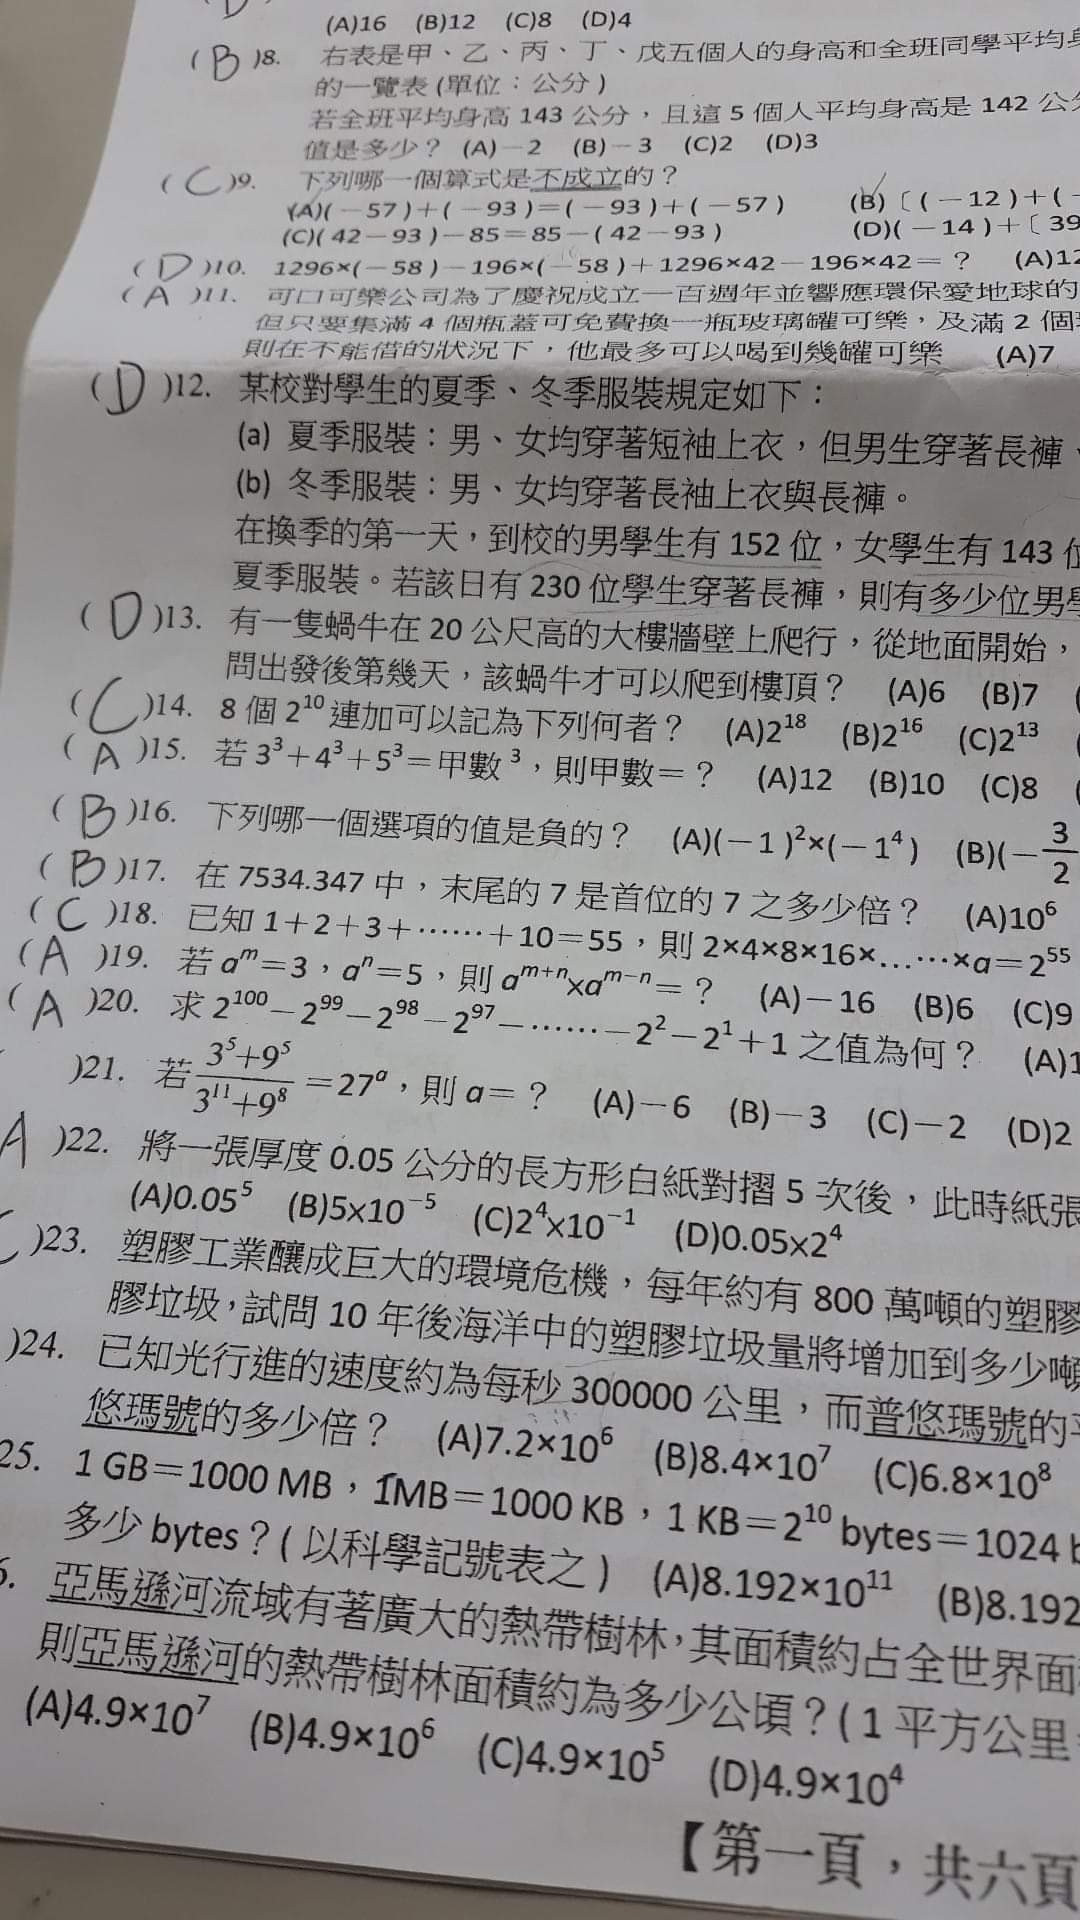 (A)16 (B)12 (C)8 (D)4
( B )8. 右表是甲、乙、丙、丁、戊五個人的身高和全班同學平均身
的一覽表(單位：公分)
若全班平均身高 143 公分，且這 5 個人平均身高是 142 公分
值是多少？ (A)－2 (B)－3 (C)2 (D)3
( C )9. 下列哪一個算式是不成立的？
(A)(－57)+(－93)=(－93)+(－57) (B)〔(－12)+(－
(C)(42－93)－85=85－(42－93) (D)(－14)+〔39
( D )10. 1296×(－58)－196×(－58)+1296×42－196×42=？ (A)12
( A )11. 可口可樂公司為了慶祝成立一百週年並響應環保愛地球的
但只要集滿 4 個瓶蓋可免費換一瓶玻璃罐可樂，及滿 2 個
則在不能借的狀況下，他最多可以喝到幾罐可樂 (A)7
( D )12. 某校對學生的夏季、冬季服裝規定如下：
(a) 夏季服裝：男、女均穿著短袖上衣，但男生穿著長褲、
(b) 冬季服裝：男、女均穿著長袖上衣與長褲。
在換季的第一天，到校的男學生有 152 位，女學生有 143 位
夏季服裝。若該日有 230 位學生穿著長褲，則有多少位男學
( D )13. 有一隻蝸牛在 20 公尺高的大樓牆壁上爬行，從地面開始，
問出發後第幾天，該蝸牛才可以爬到樓頂？ (A)6 (B)7 (
( C )14. 8 個 2¹⁰ 連加可以記為下列何者？ (A)2¹⁸ (B)2¹⁶ (C)2¹³ (
( A )15. 若 3³+4³+5³=甲數³，則甲數=？ (A)12 (B)10 (C)8 (
( B )16. 下列哪一個選項的值是負的？ (A)(－1)²×(－1⁴) (B)(－3/2
( B )17. 在 7534.347 中，末尾的 7 是首位的 7 之多少倍？ (A)10⁶
( C )18. 已知 1+2+3+……+10=55，則 2×4×8×16×...…×a=2⁵⁵
( A )19. 若 aᵐ=3，aⁿ=5，則 aᵐ⁺ⁿ×aᵐ⁻ⁿ=？ (A)－16 (B)6 (C)9
( A )20. 求 2¹⁰⁰－2⁹⁹－2⁹⁸－2⁹⁷－……－2²－2¹+1 之值為何？ (A)1
)21. 若 (3⁵+9⁵)/(3¹¹+9⁸)=27ᵃ，則 a=？ (A)－6 (B)－3 (C)－2 (D)2
A )22. 將一張厚度 0.05 公分的長方形白紙對摺 5 次後，此時紙張
(A)0.05⁵ (B)5×10⁻⁵ (C)2⁴×10⁻¹ (D)0.05×2⁴
C )23. 塑膠工業釀成巨大的環境危機，每年約有 800 萬噸的塑膠
膠垃圾，試問 10 年後海洋中的塑膠垃圾量將增加到多少噸
)24. 已知光行進的速度約為每秒 300000 公里，而普悠瑪號的平
悠瑪號的多少倍？ (A)7.2×10⁶ (B)8.4×10⁷ (C)6.8×10⁸
25. 1 GB=1000 MB，1MB=1000 KB，1 KB=2¹⁰ bytes=1024 b
多少 bytes？(以科學記號表之) (A)8.192×10¹¹ (B)8.192
亞馬遜河流域有著廣大的熱帶樹林，其面積約占全世界面
則亞馬遜河的熱帶樹林面積約為多少公頃？(1 平方公里
(A)4.9×10⁷ (B)4.9×10⁶ (C)4.9×10⁵ (D)4.9×10⁴
【第一頁，共六頁